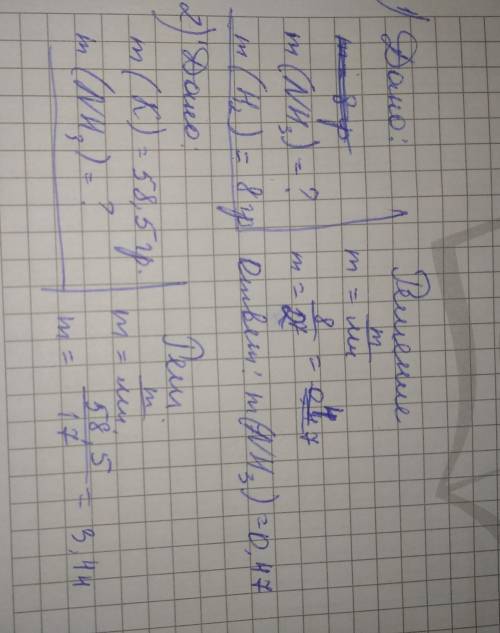 1) Дано:
m(NH₃) = ?
m(H₂) = 8 гр
Решение
m = m
m = 8 = 0,47
Ответ: m(NH₃) = 0,47
2) Дано:
m(K) = 58,5 гр.
m(NH₃) = ?
Реш
m = m
m = 58,5/17 = 3,44